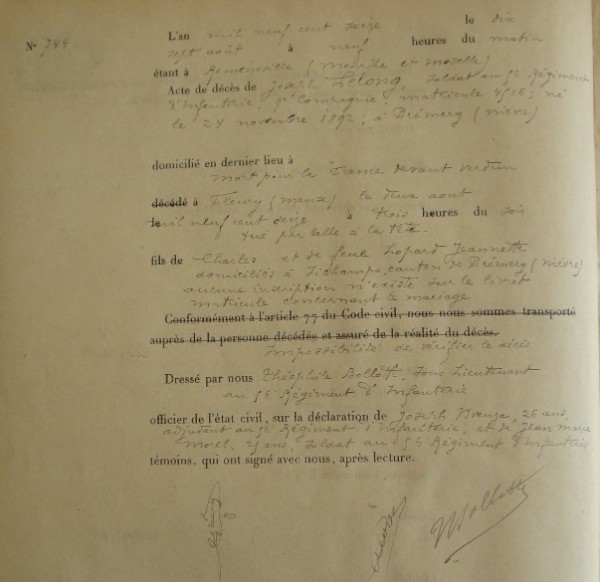 L'an mil neuf cent seize le dix
N° 744
sept août à neuf heures du matin
étant à (Meurthe et Moselle)
Acte de décès de Joseph Lelong, soldat au 5e Régiment
d'Infanterie, 9e Compagnie, matricule né
le 24 novembre 1892, à Prémery (Nièvre)
domicilié en dernier lieu à
mort pour la France devant Verdun
décédé à Fleury (Meuse) le deux août
le mil neuf cent seize à trois heures du soir
tué par balle à la tête.
fils de Charles et de feue Jeannette
domiciliés à Sichamps, canton de Prémery (Nièvre)
aucune inscription n'existe sur le livret
matricule concernant le mariage
Conformément à l'article 77 du Code civil, nous nous sommes transporté
auprès de la personne décédée et assuré de la réalité du décès.
Impossibilité de vérifier le décès
Dressé par nous Théophile Bollotte, Sous Lieutenant
au 5e Régiment d'Infanterie
officier de l'état civil, sur la déclaration de Joseph 26 ans,
adjudant au 5e Régiment d'Infanterie, et de Jean Marie
Morel, ans, soldat au 5e Régiment d'Infanterie
témoins, qui ont signé avec nous, après lecture.
Bollotte